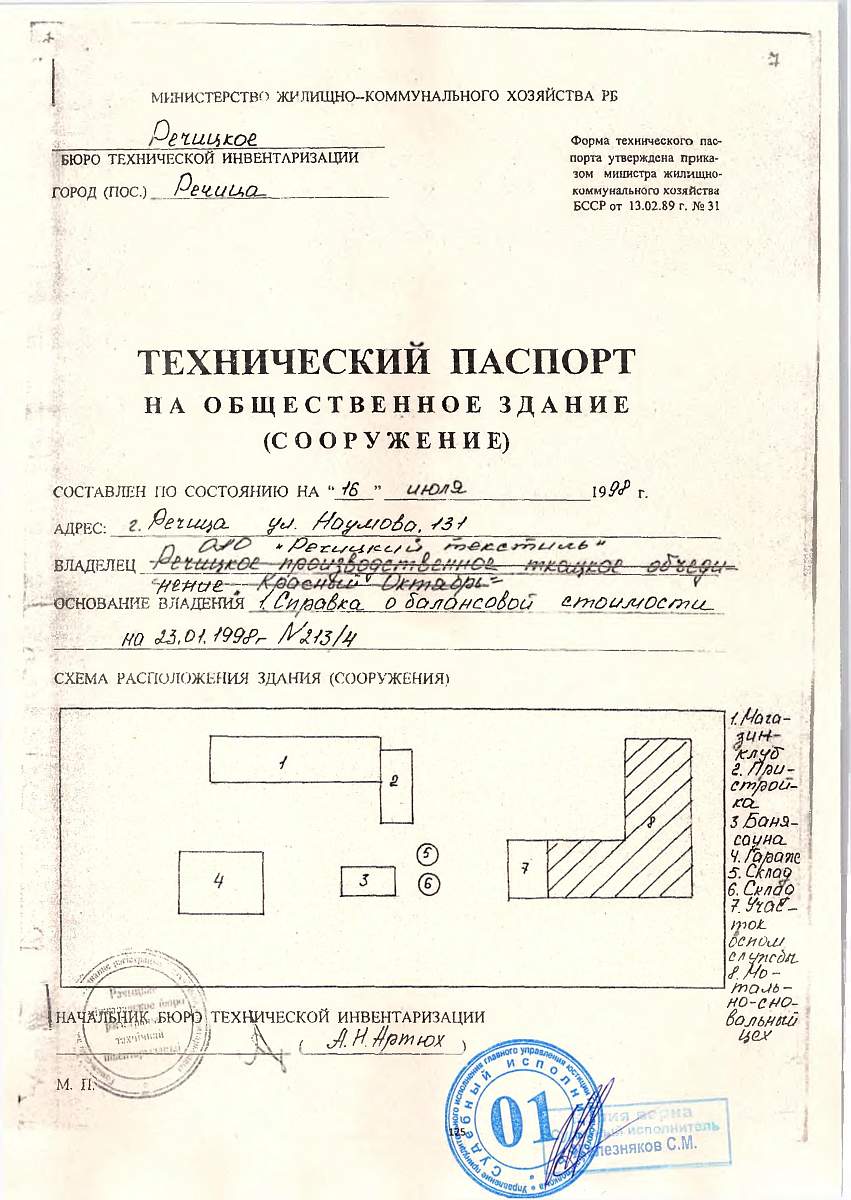 7
МИНИСТЕРСТВО ЖИЛИЩНО-КОММУНАЛЬНОГО ХОЗЯЙСТВА РБ
Речицкое
БЮРО ТЕХНИЧЕСКОЙ ИНВЕНТАРИЗАЦИИ
ГОРОД (ПОС.) Речица
Форма технического пас-
порта утверждена прика-
зом министра жилищно-
коммунального хозяйства
БССР от 13.02.89 г. № 31
ТЕХНИЧЕСКИЙ ПАСПОРТ
НА ОБЩЕСТВЕННОЕ ЗДАНИЕ
(СООРУЖЕНИЕ)
СОСТАВЛЕН ПО СОСТОЯНИЮ НА "16" июля 1998 г.
АДРЕС: г. Речица ул. Наумова, 131
ОАО "Речицкий текстиль"
ВЛАДЕЛЕЦ Речицкое производственное ткацкое объеди-
нение "Красный Октябрь"
ОСНОВАНИЕ ВЛАДЕНИЯ 1. Справка о балансовой стоимости
на 23.01.1998г N213/4
СХЕМА РАСПОЛОЖЕНИЯ ЗДАНИЯ (СООРУЖЕНИЯ)
1
2
3
4
5
6
7
8
1. Мага-
зин-
клуб
2. При-
строй-
ка
3 Баня-
сауна
4. Гараж
5. Склад
6. Склад
7. Учас-
ток
вспом
службы
8. Мо-
таль-
но-сно-
вальный
цех
НАЧАЛЬНИК БЮРО ТЕХНИЧЕСКОЙ ИНВЕНТАРИЗАЦИИ
( А.Н. Артюх )
М. П.
125
Судебный исполнитель
01
Копия верна
Судебный исполнитель
Железняков С.М.